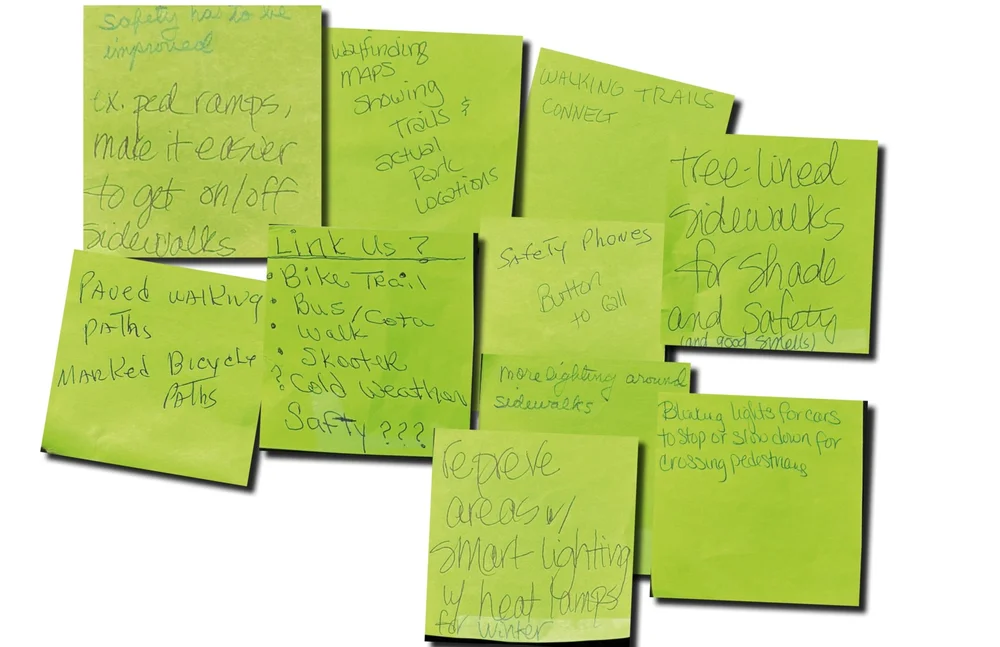 Safety has to be
improved
ex. ped ramps,
make it easier
to get on/off
sidewalks
wayfinding
MAPS
showing
Trails &
actual
Park
Locations
WALKING TRAILS
CONNECT
tree-lined
sidewalks
for shade
and safety
(and good smells)
PAved WALKING
PATHs
MARKed Bicycle
PATHs
Link Us?
• Bike Trail
• Bus/Cota
• Walk
• Skooter
? Cold Weather
Safty ???
Safety Phones
Button
to Call
more lighting around
sidewalks
Blinking lights for cars
to stop or slow down for
crossing pedestrians
repreve
areas w/
smart lighting
w/ heat lamps
for winter